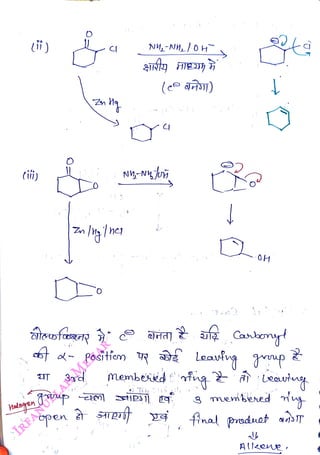 (ii)
O
Cl
NH₂-NH₂/OH⁻
क्षारीय माध्यम में
(C⊖ बनेगा)
⊖
Cl
Zn Hg
Cl
(iii)
O
O
NH₂-NH₂/OH
⊖
O
Zn/Hg/HCl
OH
O
वोल्फकिश्नर में C⊖ बनता है यदि Carbonyl
की α- Position पर कोई Leaving group है
या 3rd membered ring है तो Leaving
Halogen group चला जाएगा एवं 3 membered ring
open हो जाएगी एवं final product बनेगा
Alkene.
IRFANULLAH MEMAR